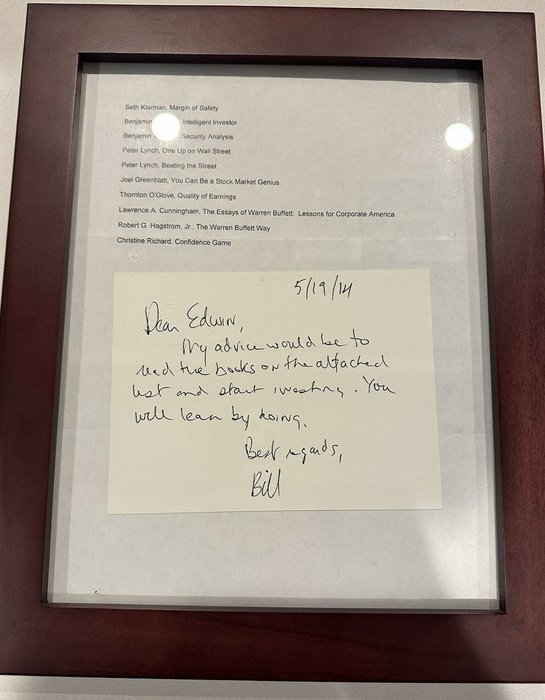 Seth Klarman, Margin of Safety
Benjamin Intelligent Investor
Benjamin Security Analysis
Peter Lynch, One Up on Wall Street
Peter Lynch, Beating the Street
Joel Greenblatt, You Can Be a Stock Market Genius
Thornton O'Glove, Quality of Earnings
Lawrence A. Cunningham, The Essays of Warren Buffett: Lessons for Corporate America
Robert G. Hagstrom, Jr., The Warren Buffett Way
Christine Richard, Confidence Game
5/19/14
Dear Edwin,
My advice would be to
read the books on the attached
list and start investing. You
will learn by doing.
Best regards,
Bill